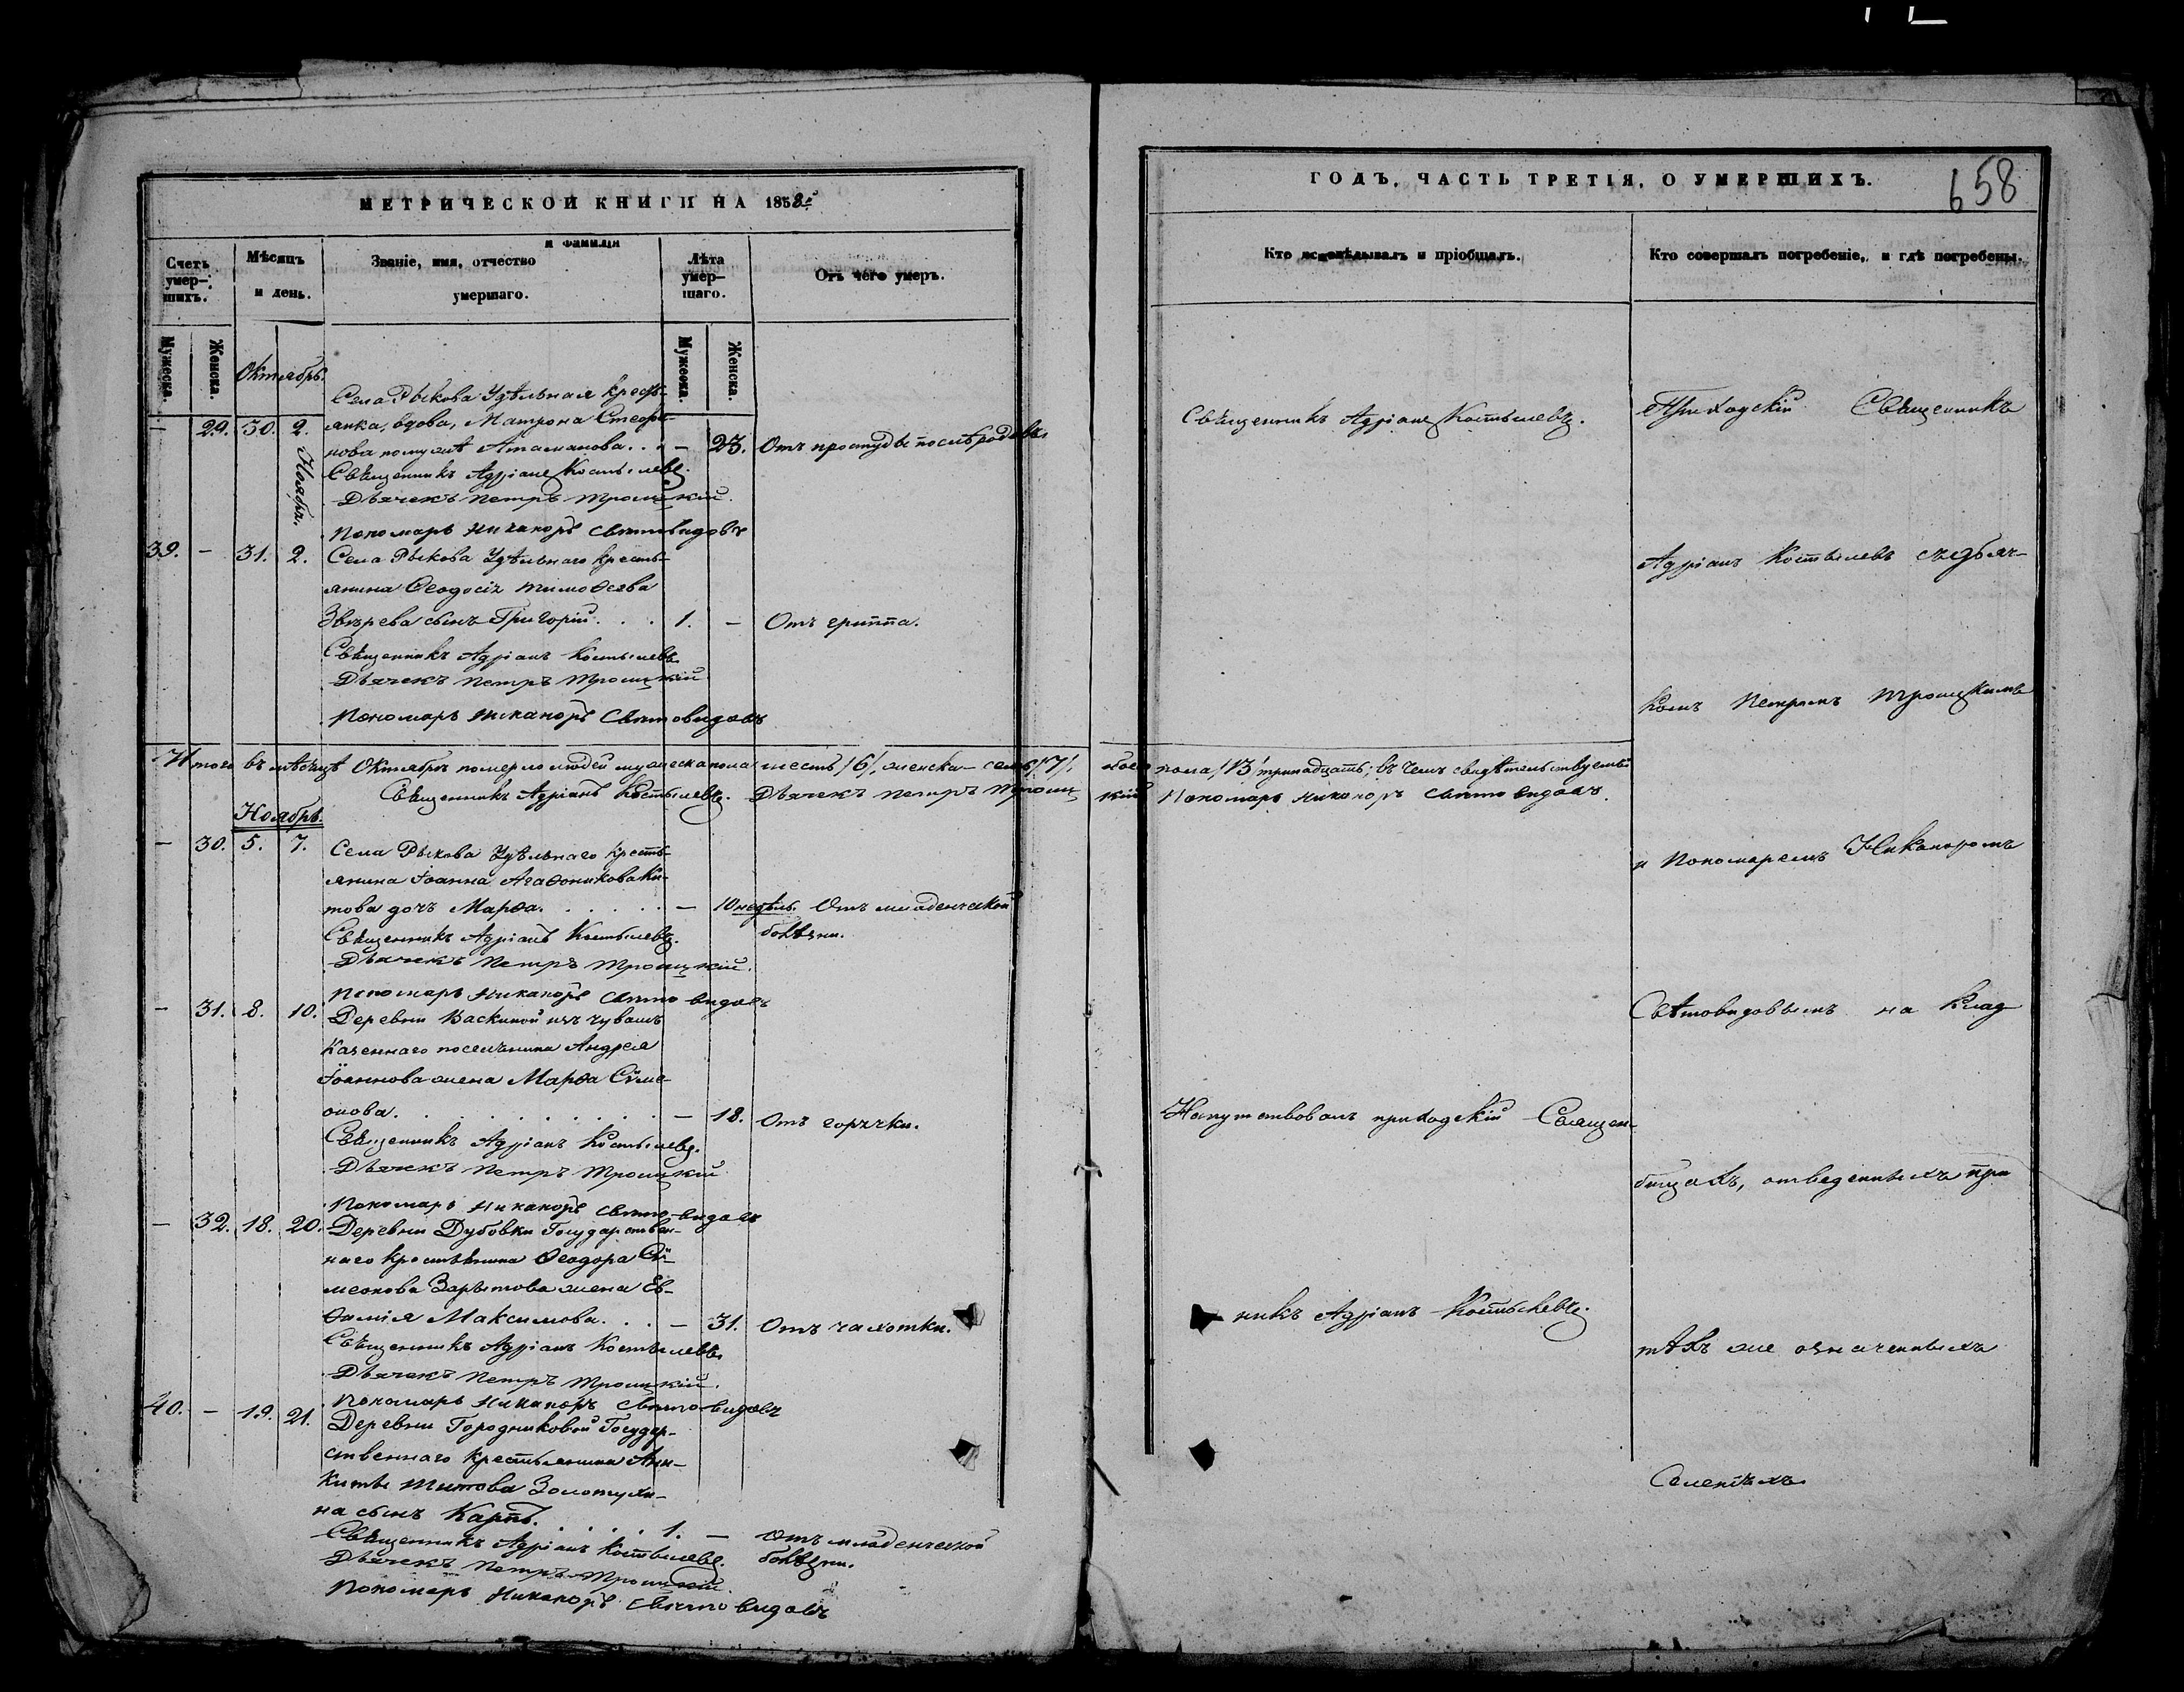 МЕТРИЧЕСКОЙ КНИГИ НА 1858й
Счетъ умер-шихъ.
Мѣсяцъ и день.
Званіе, имя, отчество и фамилія умершаго.
Лѣта умер-шаго.
Отъ чего умеръ.
Мужеска.
Женска.
Мужеска.
Женска.
Октябрь.
Села Рыкова Удѣльная кресть-
— 29. 30. 2. янка, вдова, Матрона Стефа-
Ноября.
нова по мужѣ Атаманова. . . — 23. Отъ простуды послѣ родовъ.
Священникъ Адріанъ Костылевъ.
Дьячекъ Петръ Троицкій.
Пономарь Никаноръ Святовидовъ
39. — 31. 2. Села Рыкова Удѣльнаго кресть-
янина Ѳеодосія Тимоѳеева
Звѣрева сынъ Григорій. . . . 1. — Отъ гриппа.
Священникъ Адріанъ Костылевъ.
Дьячекъ Петръ Троицкій
Пономарь Никаноръ Святовидовъ
Итого въ мѣсяцѣ Октябрѣ померло людей мужеска пола шесть /6/, женска — семь /7/,
Священникъ Адріанъ Костылевъ. Дьячекъ Петръ Троиц
Ноябрь.
— 30. 5. 7. Села Рыкова Удѣльнаго кресть-
янина Іоанна Агаѳоникова Ки-
това дочь Марѳа. . . . . . — 10 недѣль. Отъ младенческой
Священникъ Адріанъ Костылевъ. болѣзни.
Дьячекъ Петръ Троицкій.
Пономарь Никаноръ Святовидовъ
— 31. 8. 10. Деревни Васкиной изъ чувашъ
Казеннаго поселянина Андрея
Іоаннова жена Марѳа Сѵме-
онова. . . . . . . . . — 18. Отъ горячки.
Священникъ Адріанъ Костылевъ.
Дьячекъ Петръ Троицкій
Пономарь Никаноръ Святовидовъ
— 32. 18. 20. Деревни Дубовки Государствен-
наго крестьянина Ѳеодора Сѵ-
меонова жена Ев-
ѳимія Максимова. . . — 31. Отъ чахотки.
Священникъ Адріанъ Костылевъ.
Дьячекъ Петръ Троицкій.
Пономарь Никаноръ Святовидовъ
40. — 19. 21. Деревни Городниковой Государ-
ственнаго крестьянина Ани-
киты Титова Золотухи-
на сынъ Карпъ. . . . . 1. — Отъ младенческой
Священникъ Адріанъ Костылевъ. болѣзни.
Дьячекъ Петръ Троицкій.
Пономарь Никаноръ Святовидовъ
ГОДЪ, ЧАСТЬ ТРЕТІЯ, О УМЕРШИХЪ.
658
Кто исповѣдывалъ и пріобщалъ.
Кто совершалъ погребеніе, и гдѣ погребены.
Священникъ Адріанъ Костылевъ.
Приходскій Священникъ
Адріанъ Костылевъ съ дьяч-
комъ Петромъ Троицкимъ
обоего пола /13/ тринадцать; въ чемъ свидѣтельствуемъ:
кій Пономарь Никаноръ Святовидовъ.
и Пономаремъ Никаноромъ
Святовидовымъ на клад-
Напутствовалъ приходскій Священ-
бищахъ, отведенныхъ при
никъ Адріанъ Костылевъ.
тѣхъ же означенныхъ
Селеніяхъ